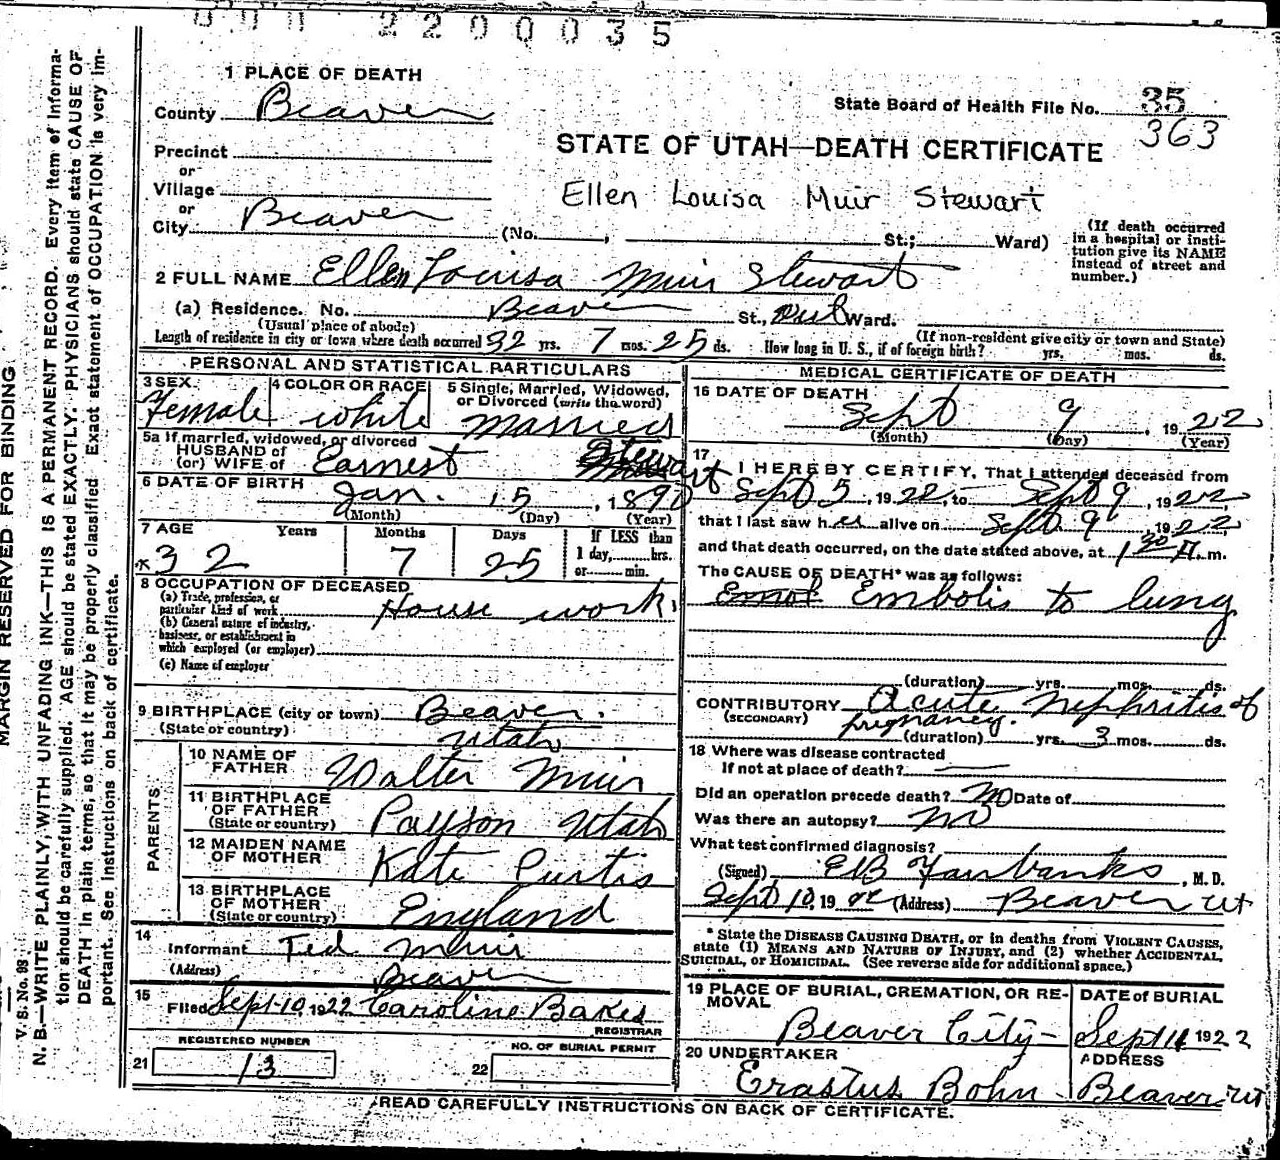 000 2200035
1 PLACE OF DEATH
County Beaver
State Board of Health File No. 35
363
Precinct
or
Village
or
City Beaver
STATE OF UTAH—DEATH CERTIFICATE
Ellen Louisa Muir Stewart
(No. , St.; Ward)
(If death occurred
in a hospital or insti-
tution give its NAME
instead of street and
number.)
2 FULL NAME Ellen Louisa Muir Stewart
(a) Residence. No. Beaver St., Ward.
(Usual place of abode)
(If non-resident give city or town and State)
Length of residence in city or town where death occurred 32 yrs. 7 mos. 25 ds. How long in U. S., if of foreign birth? yrs. mos. ds.
PERSONAL AND STATISTICAL PARTICULARS
3 SEX
Female
4 COLOR OR RACE
white
5 Single, Married, Widowed,
or Divorced (write the word)
Married
5a If married, widowed, or divorced
HUSBAND of
(or) WIFE of Earnest Stewart
6 DATE OF BIRTH Jan. 15, 1890
(Month) (Day) (Year)
7 AGE Years Months Days
32 7 25
If LESS than
1 day, hrs.
or min.
8 OCCUPATION OF DECEASED
(a) Trade, profession, or
particular kind of work House work
(b) General nature of industry,
business, or establishment in
which employed (or employer)
(c) Name of employer
9 BIRTHPLACE (city or town) Beaver.
(State or country) Utah
PARENTS
10 NAME OF
FATHER Walter Muir
11 BIRTHPLACE
OF FATHER
(State or country) Payson Utah
12 MAIDEN NAME
OF MOTHER Kate Curtis
13 BIRTHPLACE
OF MOTHER
(State or country) England
14
Informant Ted Muir
(Address) Beaver
15
Filed Sept-10, 1922 Caroline Bakes
REGISTRAR
REGISTERED NUMBER
21 13
NO. OF BURIAL PERMIT
22
MEDICAL CERTIFICATE OF DEATH
16 DATE OF DEATH
Sept 9, 1922
(Month) (Day) (Year)
17
I HEREBY CERTIFY, That I attended deceased from
Sept 5, 1922, to Sept 9, 1922
that I last saw her alive on Sept 9, 1922
and that death occurred, on the date stated above, at 1 30 A. m.
The CAUSE OF DEATH* was as follows:
Embolis to lung
(duration) yrs. mos. ds.
CONTRIBUTORY Acute Nephritis of
(SECONDARY) pregnancy.
(duration) yrs. 3 mos. ds.
18 Where was disease contracted
If not at place of death?
Did an operation precede death? No Date of
Was there an autopsy? No
What test confirmed diagnosis?
(Signed) Fairbanks, M. D.
Sept 10, 1922 (Address) Beaver Ut
* State the DISEASE CAUSING DEATH, or in deaths from VIOLENT CAUSES,
state (1) MEANS AND NATURE OF INJURY, and (2) whether ACCIDENTAL,
SUICIDAL, or HOMICIDAL. (See reverse side for additional space.)
19 PLACE OF BURIAL, CREMATION, OR RE-
MOVAL
Beaver City—
DATE of BURIAL
Sept 11 1922
20 UNDERTAKER
Erastus Bohn
ADDRESS
Beaver Ut
READ CAREFULLY INSTRUCTIONS ON BACK OF CERTIFICATE.
MARGIN RESERVED FOR BINDING
V. S. No. 93
N. B.—WRITE PLAINLY, WITH UNFADING INK—THIS IS A PERMANENT RECORD. Every item of informa-
tion should be carefully supplied. AGE should be stated EXACTLY. PHYSICIANS should state CAUSE OF
DEATH in plain terms, so that it may be properly classified. Exact statement of OCCUPATION is very im-
portant. See instructions on back of certificate.